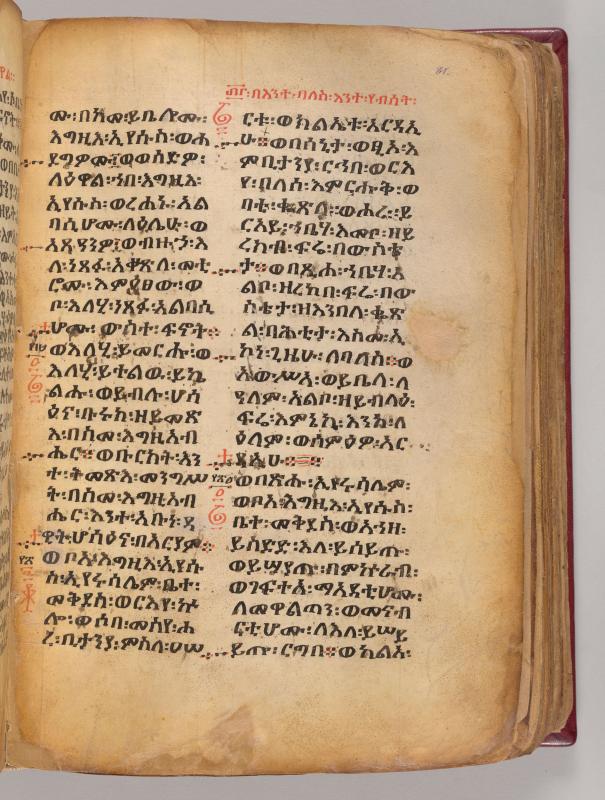 በእንተ፡በለስ፡እንተ፡የብሰት፡
ሙ፡በከመ፡ይቤሎሙ፡
እግዚእ፡ኢየሱስ፡ወሐ
ደግዎሙ፤ወወሰድዎ፡
ለዕዋል፡ኀበ፡እግዚእ፡
ኢየሱስ፡ወረሐኑ፡አል
ባሲሆሙ፡ለዕሌሁ፡ወ
አጽዓንዎ፤ወብዙኃ፡እ
ለ፡ነጸፉ፡አቍጽለ፡መቲ
ሮሙ፡እምዕፀው፡ወ
ቦ፡እለሂ፡ነጸፉ፡አልባሲ
ሆሙ፡ውስተ፡ፍኖት።
ወእለሂ፡ይመርሑ፡ወ
እለሂ፡ይተልዉ፡ይኬ
ልሑ፡ወይብሉ፡ሆሳ
ዕና፡ቡሩክ፡ዘይመጽ
እ፡በስመ፡እግዚአብ
ሔር።ወቡርክት፡እን
ተ፡ትመጽእ፡መንግሥ
ት፡በስመ፡እግዚአብ
ሔር፡እንተ፡አቡነ፡ዳ
ዊት፡ሆሳዕና፡በአርያም።
ወቦአ፡እግዚእ፡ኢየሱ
ስ፡ኢየሩሳሌም፡ቤተ፡
መቅደስ፡ወርእየ፡ኵ
ሎ፡ወሶበ፡መስየ፡ሐ
ረ፡ቢታንያ፡ምስለ፡
ርቱ፡ወክልኤቱ፡አርዳኢ
ሁ።ወበሳኒታ፡ወፂኦ፡እ
ምቢታንያ፡ርኅበ፡ወርእ
የ፡በለሰ፡እምርሑቅ፡ወ
ባቲ፡ቈጽለ፡ወሐረ፡ይ
ርአይ፡ኀቤሃ፡እመቦ፡ዘይ
ረክብ፡ፍሬ፡በውስቴ
ታ።ወበጺሖ፡ኀቤሃ፡አ
ልቦ፡ዘረከበ፡ፍሬ፡በው
ስቴታ፡ዘእንበለ፡ቈጽ
ል፡በሕቲታ፡እስመ፡ኢ
ኮነ፡ጊዜሁ፡ለበለስ።ወ
አውሥአ፡ወይቤላ፡ለ
ዓለም፡አልቦ፡ዘይበልዕ፡
ፍሬ፡እምኔኪ፡እንከ፡ለ
ዕለም፡ወሰምዕዎ፡አር
ዳኢሁ።
ወበጽሑ፡ኢየሩሳሌም፡
ወቦአ፡እግዚእ፡ኢየሱስ፡
ቤተ፡መቅደስ፡ወአኀዘ፡
ይስድድ፡እለ፡ይሰይጡ፡
ወይሣየጡ፡በምኵራብ፡
ወገፍትአ፡ማእዳቲሆሙ፡
ለመዋልጣን፡ወመናብ
ርቲሆሙ፡ለእለ፡ይሠይ
ይጡ፡ርግበ።ወከልአ፡